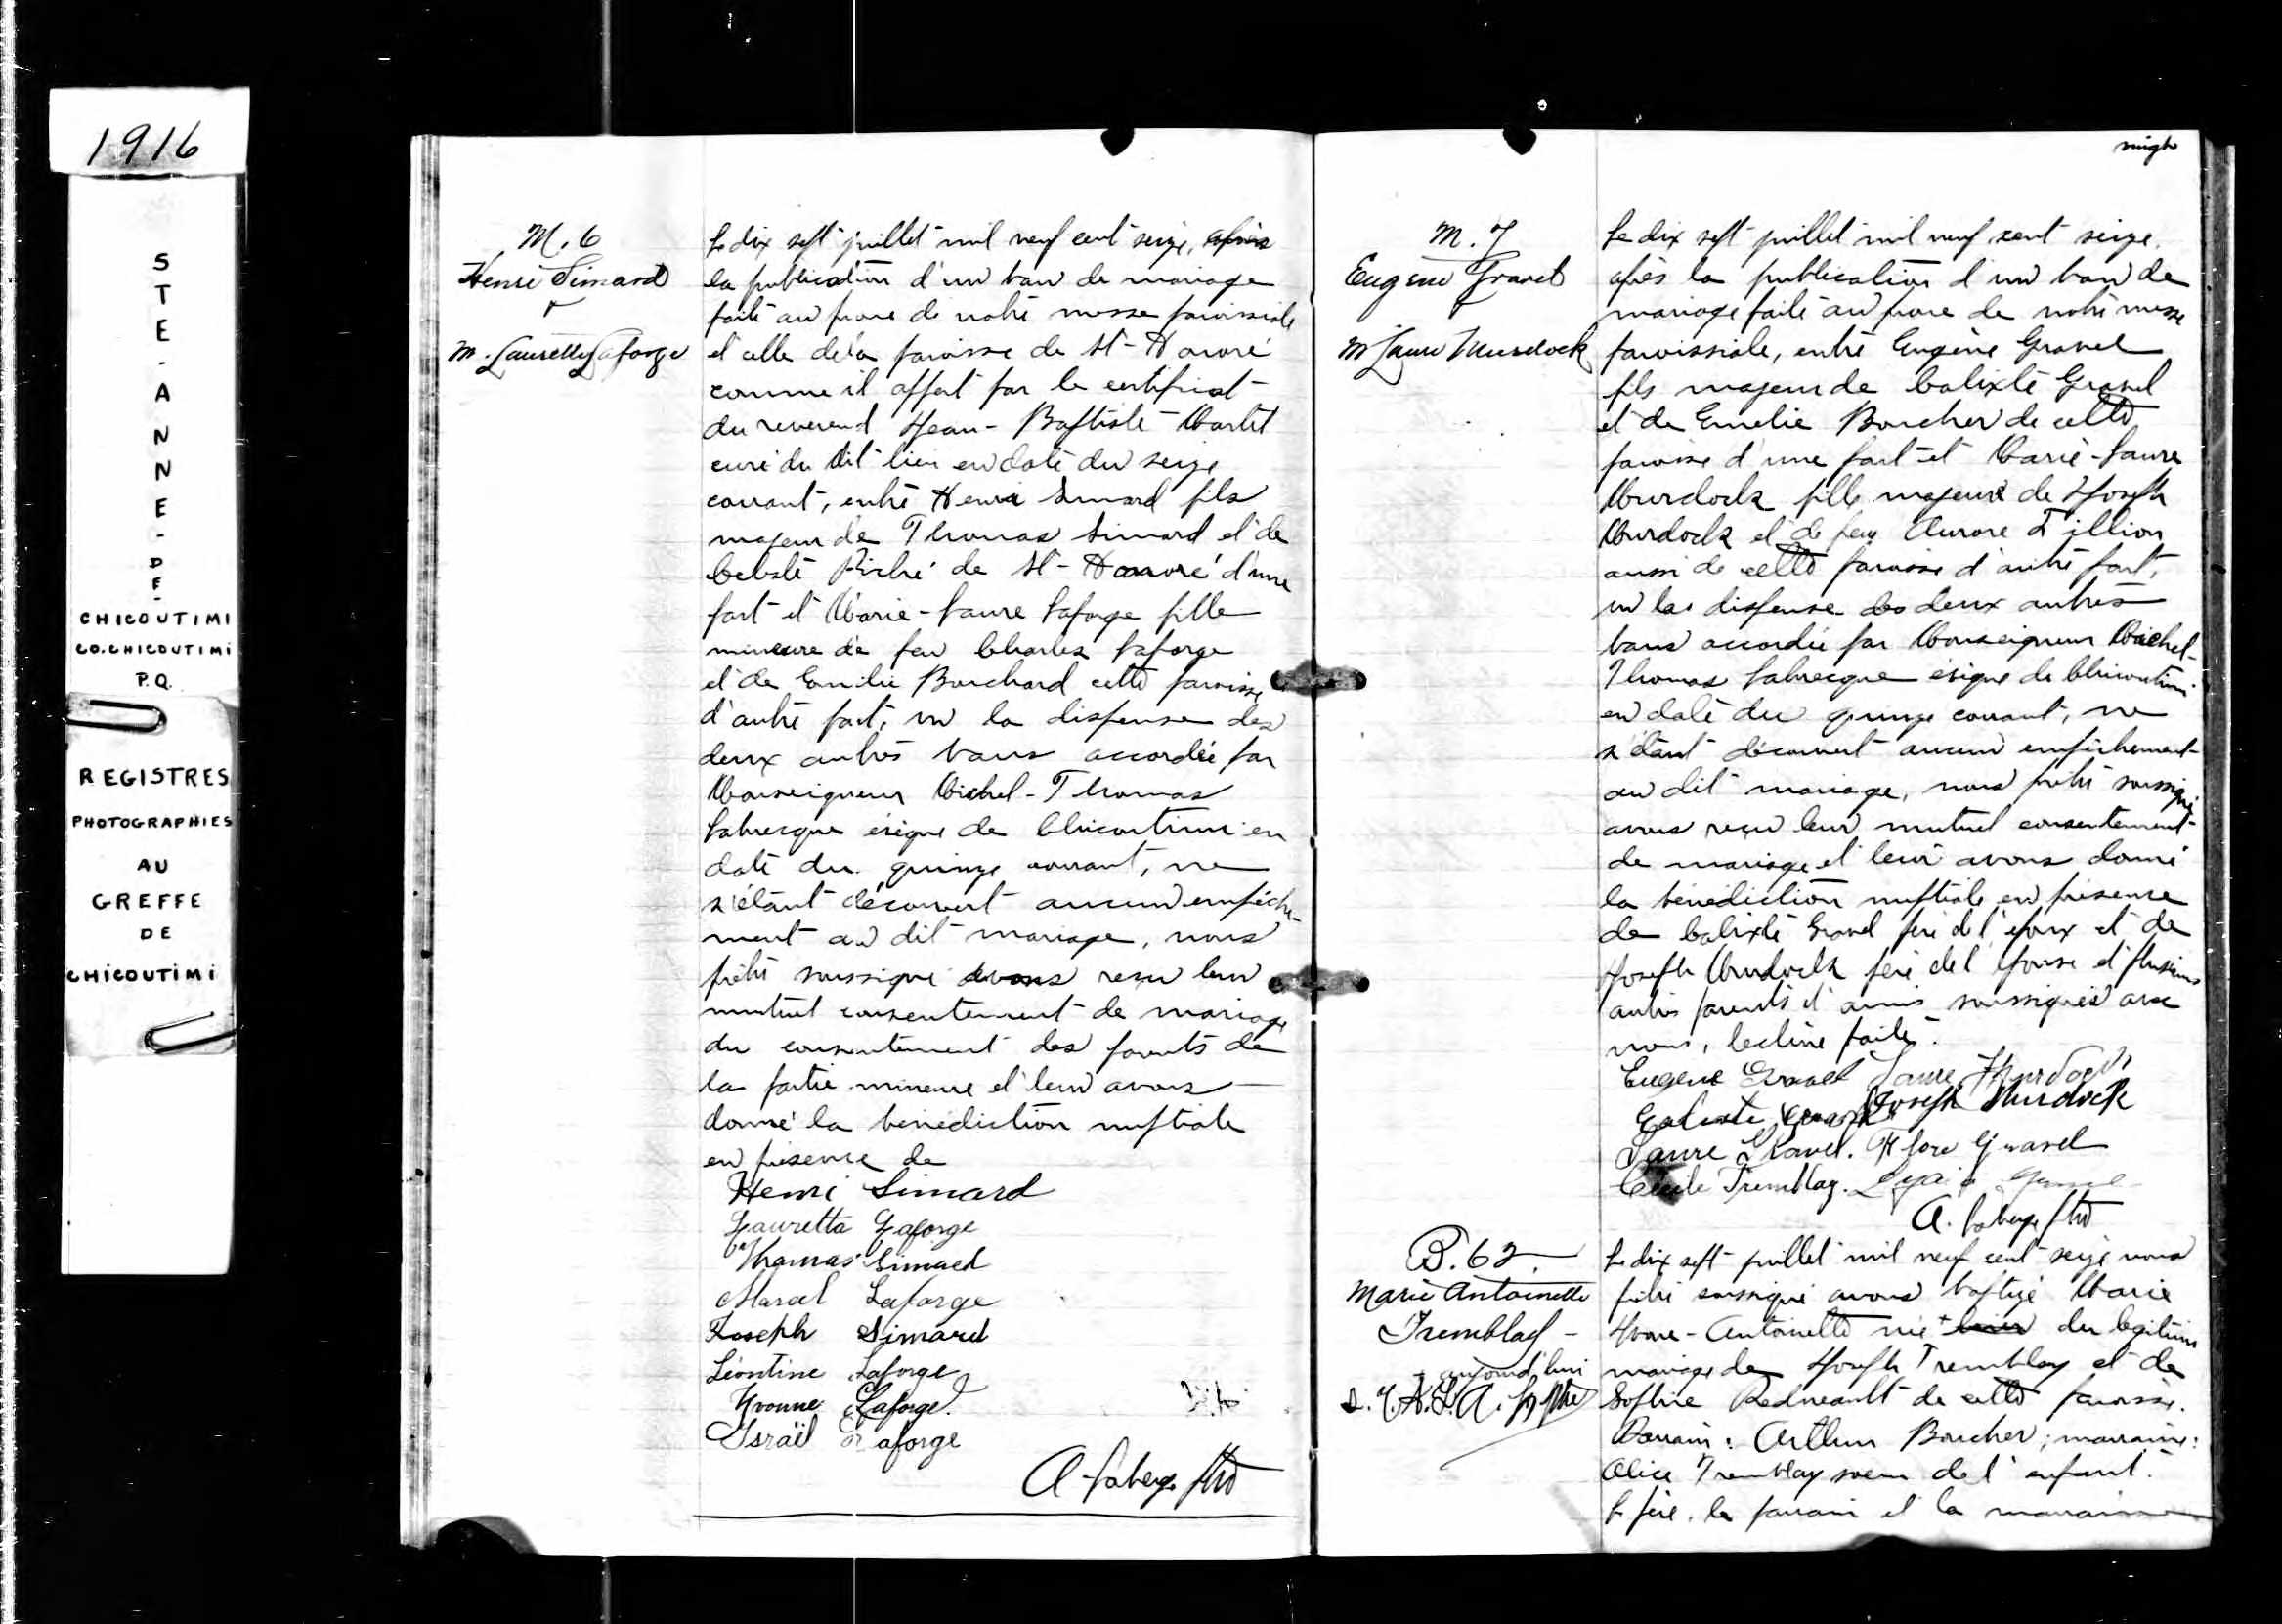 1916
STE-ANNE-DE-
CHICOUTIMI
CO. CHICOUTIMI
P.Q.
REGISTRES
PHOTOGRAPHIES
AU
GREFFE
DE
CHICOUTIMI
M. 6
Henri Simard
&
M. Lauretta Laforge
Le dix sept juillet mil neuf cent seize, après
la publication d'un ban de mariage
faite au prone de notre messe paroissiale
et celle de la paroisse de St-Honoré
comme il appert par le certificat
du reverend Jean-Baptiste Martel
curé du dit lieu en date du seize
courant, entre Henri Simard fils
majeur de Thomas Simard et de
Celeste Piché de St-Honoré d'une
part et Marie-Laure Laforge fille
mineure de feu Charles Laforge
et de Emilie Bouchard cette paroisse
d'autre part, vu la dispense des
deux autres bans accordée par
Monseigneur Michel-Thomas
Labrecque évêque de Chicoutimi en
date du quinze courant, ne
s'étant découvert aucun empêche-
ment au dit mariage, nous
prêtre soussigné avons reçu leur
mutuel consentement de mariage
du consentement des parents de
la partie mineure et leur avons
donné la bénédiction nuptiale
en présence de
Henri Simard
Lauretta Laforge
Thomas Simard
Marcel Laforge
Joseph Simard
Léontine Laforge
Yvonne Laforge.
Israël Laforge
A. Laberge ptre
vingt
M. 7
Eugène Gravel
&
M Laure Murdock
Le dix sept juillet mil neuf cent seize,
après la publication d'un ban de
mariage faite au prone de notre messe
paroissiale, entre Eugène Gravel
fils majeur de Calixte Gravel
et de Emelie Boucher de cette
paroisse d'une part et Marie-Laure
Murdock fille majeure de Joseph
Murdock et de feu Aurore Fillion
aussi de cette paroisse d'autre part,
vu la dispense des deux autres
bans accordée par Monseigneur Michel-
Thomas Labrecque évêque de Chicoutimi
en date du quinze courant, ne
s'étant découvert aucun empêchement
au dit mariage, nous prêtre soussigné
avons reçu leur mutuel consentement
de mariage et leur avons donné
la bénédiction nuptiale en présence
de Calixte Gravel père de l'époux et de
Joseph Murdock père de l'épouse et plusieurs
autres parents et amis soussignés avec
nous, lecture faite.
Eugene Gravel Laure Murdock
Calixte Gravel Joseph Murdock
Laure Gravel. Flore Gravel
Cécile Tremblay.
A. Laberge ptre
B. 62.
Marie Antoinette
Tremblay -
+ aujourd'hui
Le dix sept juillet mil neuf cent seize nous
prêtre soussigné avons baptisé Marie
Yvonne-Antoinette née + du legitime
mariage de Joseph Tremblay et de
Sophie Redneault de cette paroisse.
Parrain: Arthur Boucher; marraine:
Alice Tremblay soeur de l'enfant.
Le père, le parrain et la marraine